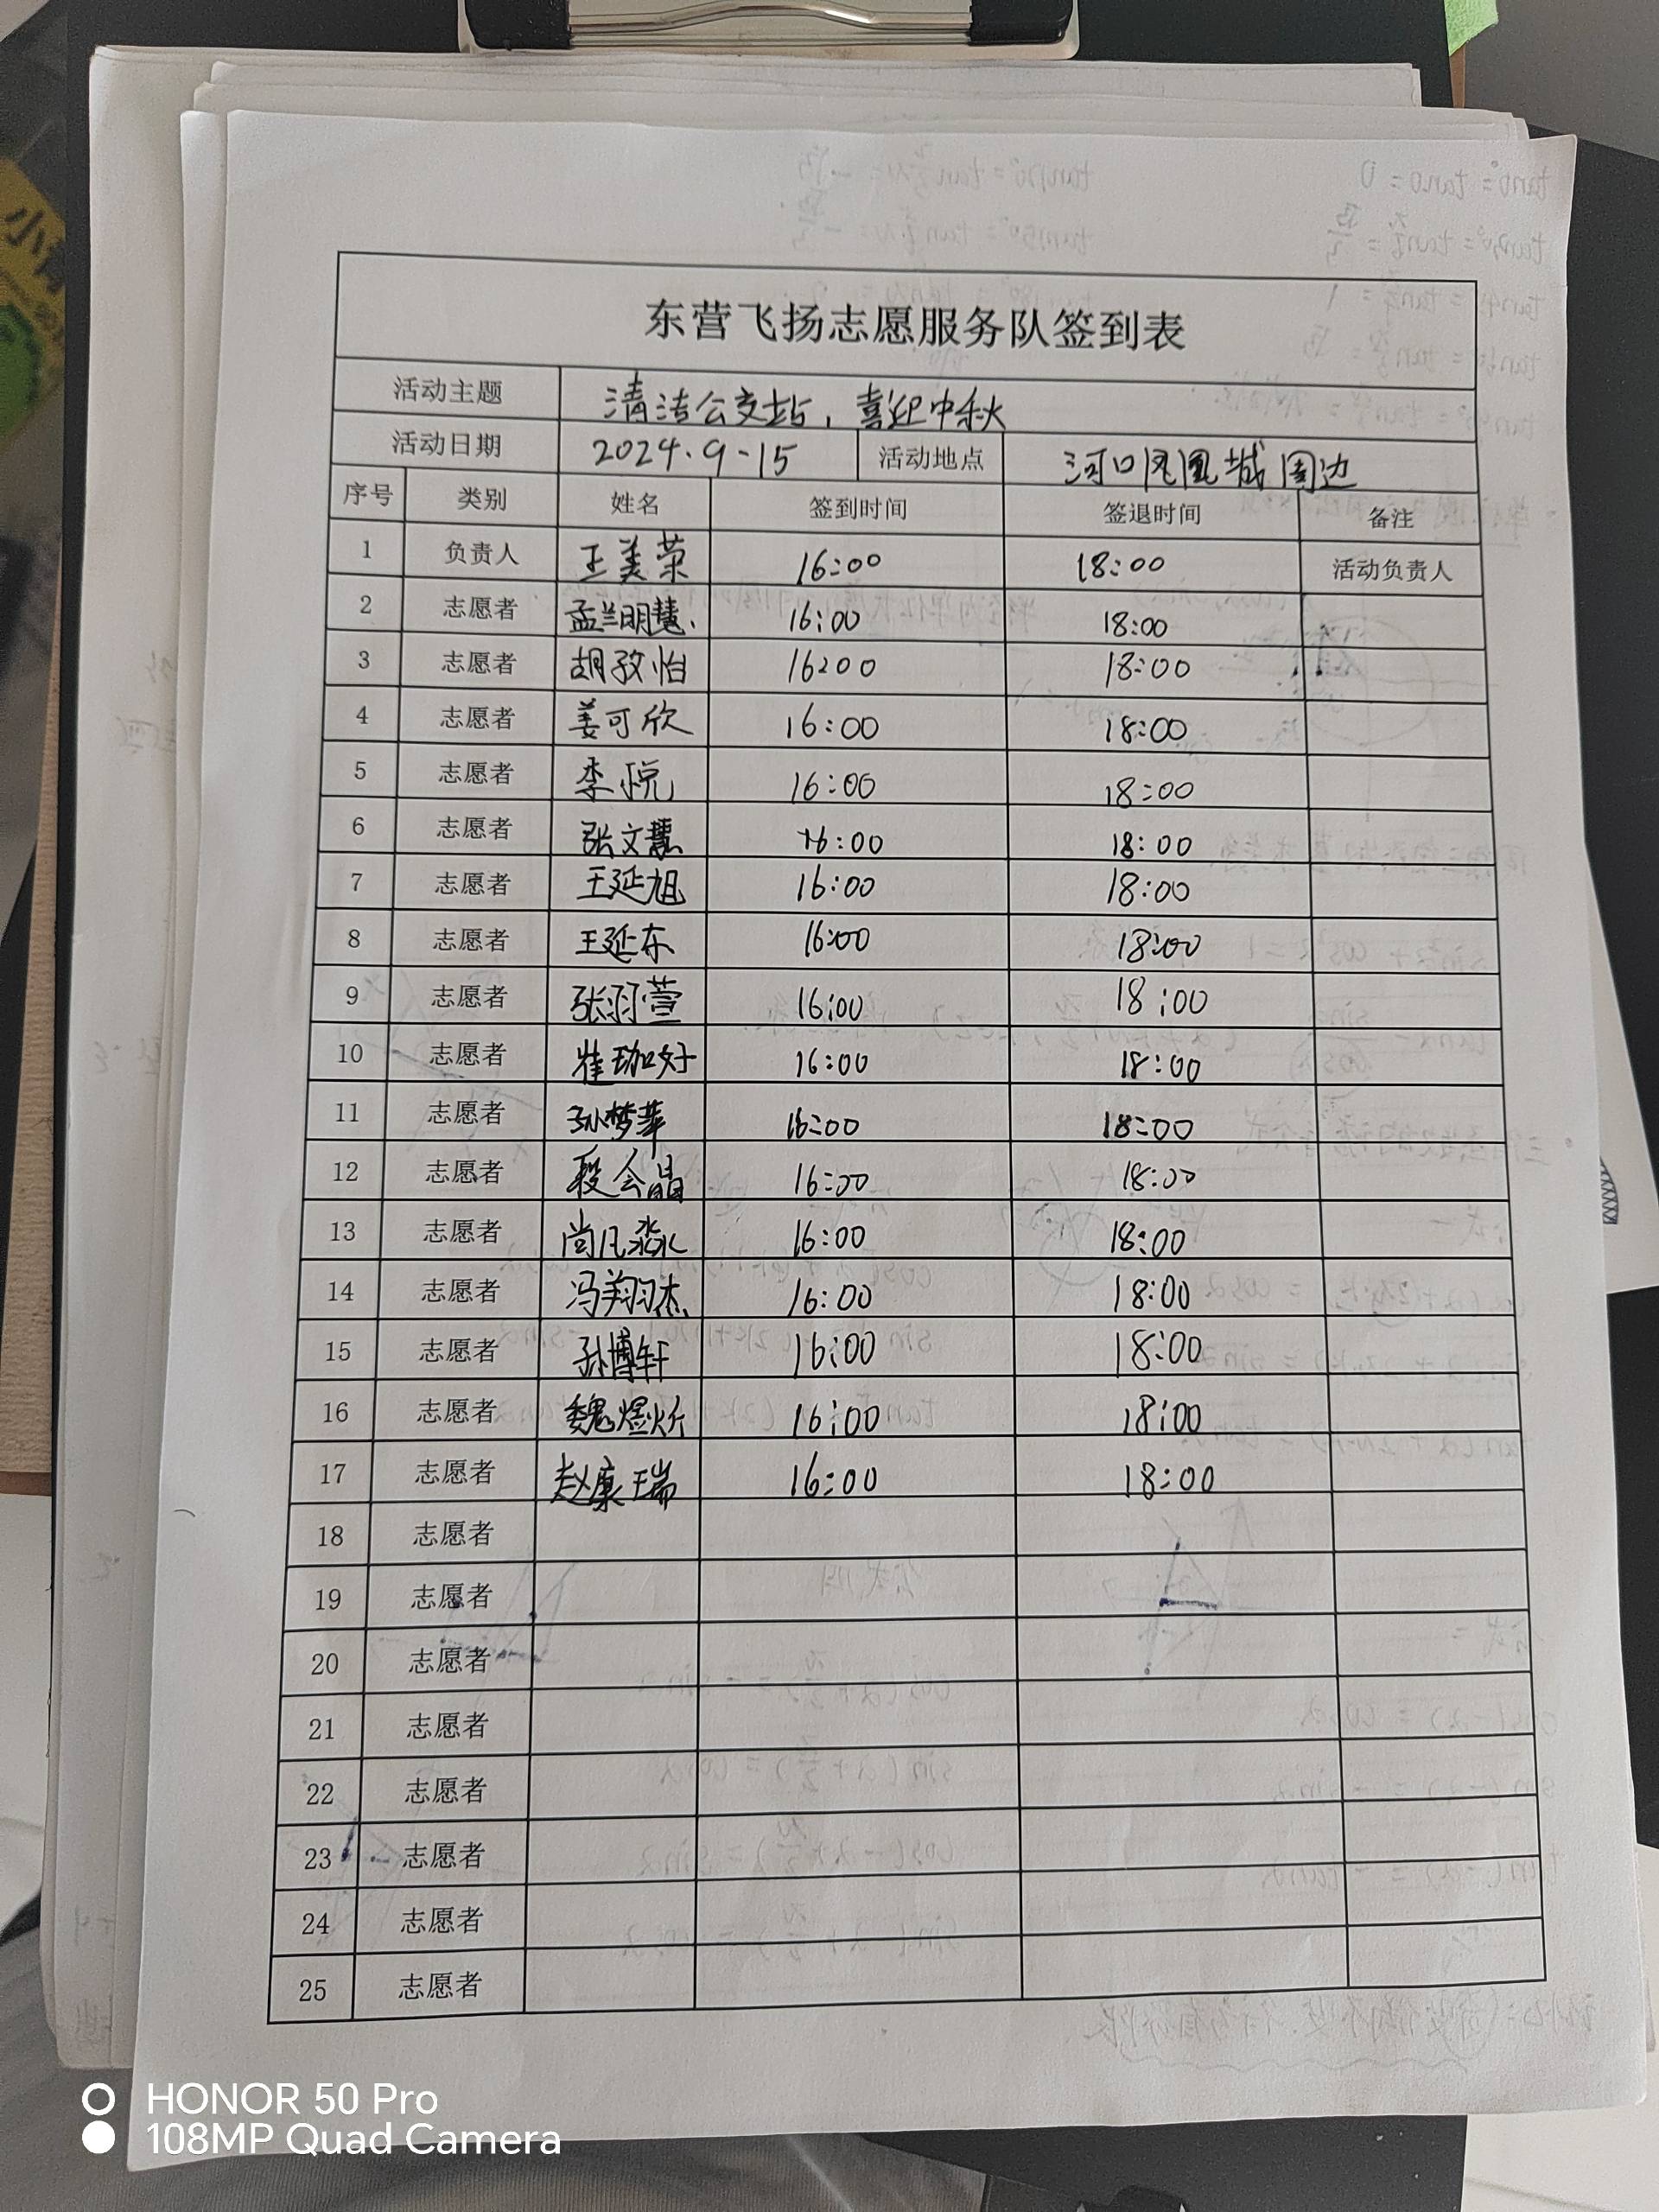 东营飞扬志愿服务队签到表
活动主题 清洁公交站，喜迎中秋
活动日期 2024.9-15 活动地点 河口凤凰城周边
序号 类别 姓名 签到时间 签退时间 备注
1 负责人 王美荣 16:00 18:00 活动负责人
2 志愿者 孟兰明慧 16:00 18:00
3 志愿者 胡孜怡 16:00 18:00
4 志愿者 姜可欣 16:00 18:00
5 志愿者 李悦 16:00 18:00
6 志愿者 张文慧 16:00 18:00
7 志愿者 王延旭 16:00 18:00
8 志愿者 王延东 16:00 18:00
9 志愿者 张羽萱 16:00 18:00
10 志愿者 崔珈好 16:00 18:00
11 志愿者 孙梦苹 16:00 18:00
12 志愿者 段会晶 16:00 18:00
13 志愿者 尚凡淼 16:00 18:00
14 志愿者 冯翔杰 16:00 18:00
15 志愿者 孙博轩 16:00 18:00
16 志愿者 魏煜炘 16:00 18:00
17 志愿者 赵康瑞 16:00 18:00
18 志愿者
19 志愿者
20 志愿者
21 志愿者
22 志愿者
23 志愿者
24 志愿者
25 志愿者
HONOR 50 Pro
108MP Quad Camera